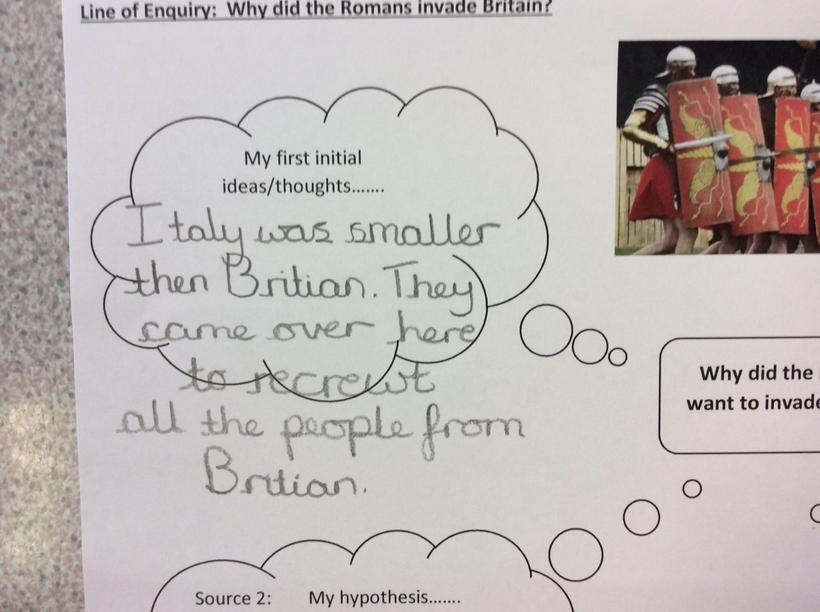 Line of Enquiry: Why did the Romans invade Britain?
My first initial
ideas/thoughts.......
Italy was smaller
then Britian. They
came over here
to recrewt
all the people from
Britian.
Why did the
want to invade
Source 2: My hypothesis.......